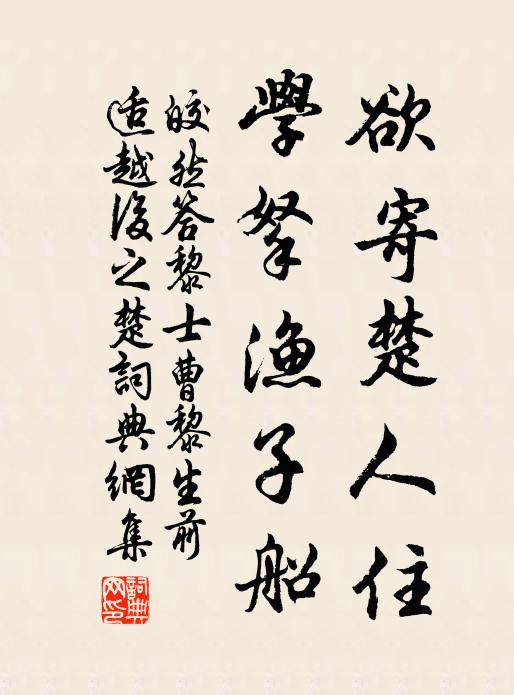 欲寄楚人住
學拏漁子船
皎然答黎士曹黎生前
適越後之楚詞典網集
詞典網印